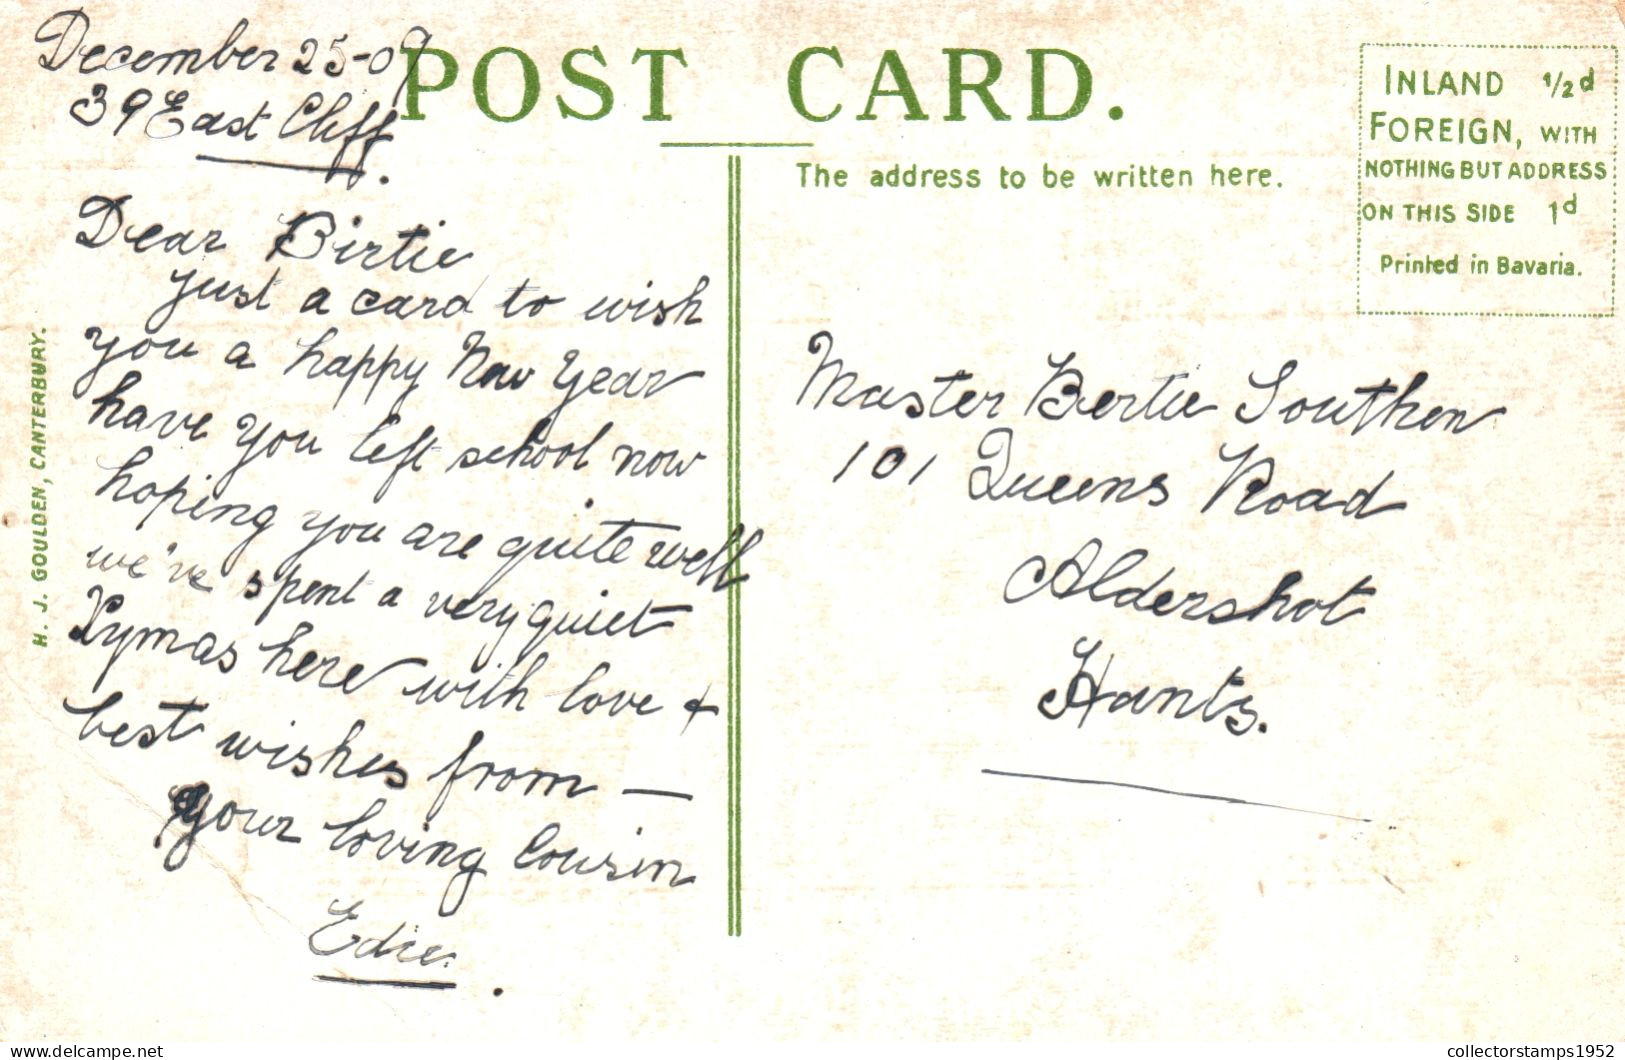 December 25-09
39 East Cliff.
Dear Birtie
Just a card to wish
you a happy New Year
have you left school now
hoping you are quite well
we've spent a very quiet
Xymas here with love +
best wishes from —
your loving Cousin
Edie.
H. J. GOULDEN, CANTERBURY.
POST CARD.
The address to be written here.
INLAND ½d
FOREIGN, WITH
NOTHING BUT ADDRESS
ON THIS SIDE 1d
Printed in Bavaria.
Master Bertie Southon
101 Queens Road
Aldershot
Hants.
collectorstamps1952